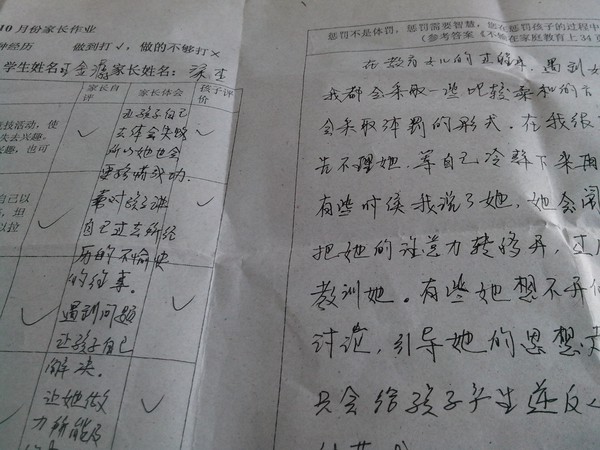 10月份家长作业
种经历 做到打√，做的不够打×
学生姓名 家长姓名：
家长自评
家长体会
孩子评价
竞技活动，使
失去兴趣。
兴趣，也可
自己以
，坦
以拉
让孩子自己
去体会失败
所以她也会
要珍惜成功.
着时候讲
自己过去所经
历的不愉快
的往事.
遇到问题
让孩子自己
解决.
让她做
力所能及
惩罚不是体罚，惩罚需要智慧，您在惩罚孩子的过程中
（参考答案《不输在家庭教育上34页
在教育女儿的过程中，遇到
我都会采取一些比较柔和的方
会采取体罚的形式。在我很
先不理她，等自己冷静下来再
有些时候我说了她，她会闹
把她的注意力转移开，过后
教训她。有些她想不开的
讨论，引导她的思想走
只会给孩子产生逆反心